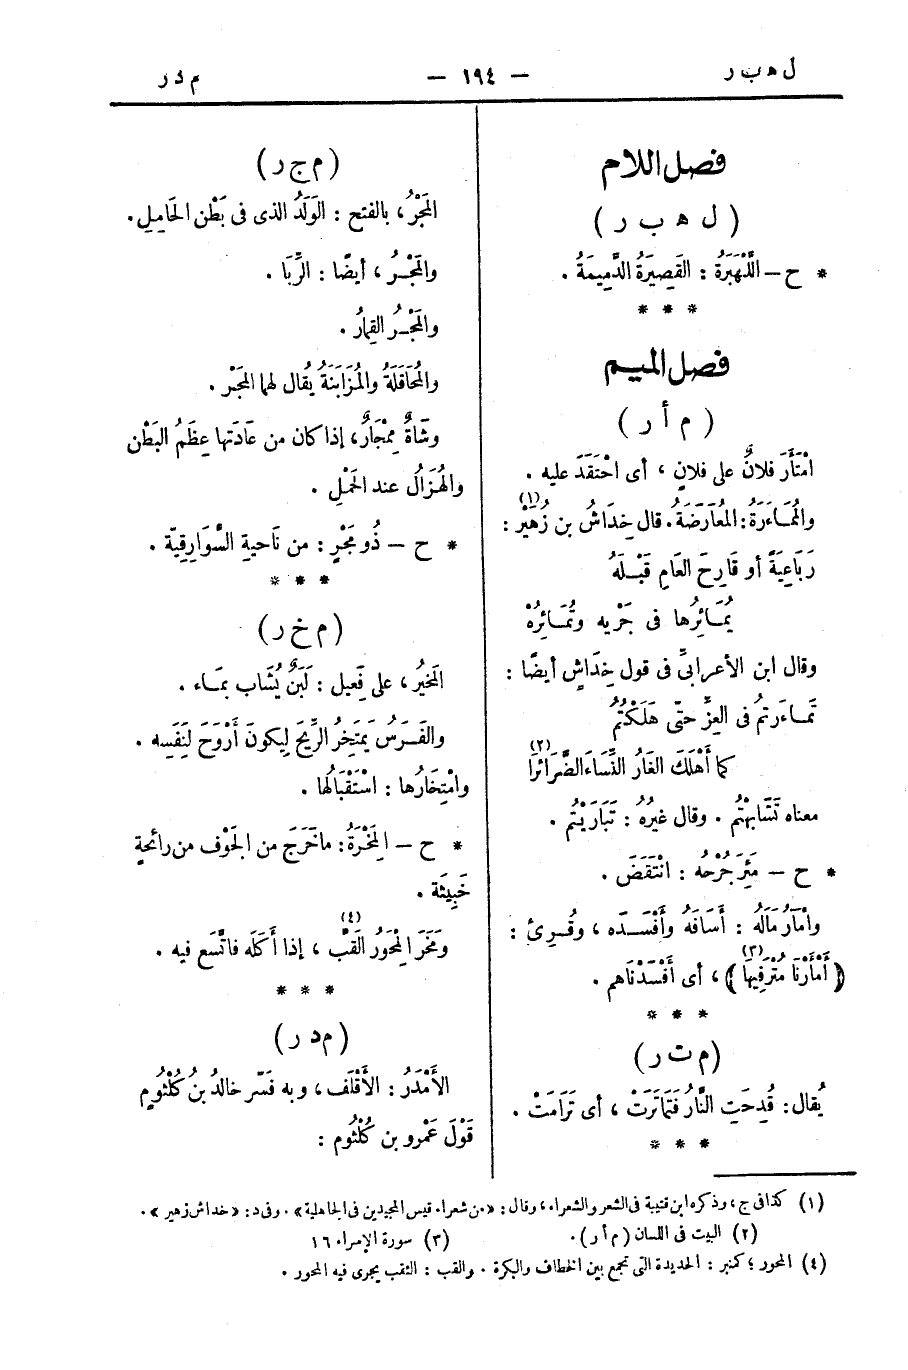 ل ه ب ر
— ١٩٤ —
م د ر
فصل اللام
( ل ه ب ر )
* ح — اللَّهْبَرَةُ : القَصِيرَةُ الدَّمِيمَةُ .
* * *
فصل الميم
( م أ ر )
امْتَأَرَ فلانٌ على فلانٍ ، أى احْتَقَدَ عليه .
والمُمَاءَرَةُ : المُعَارَضَةُ . قال خِدَاشُ بن زُهَيْرٍ (١) :
رَبَاعِيَةً أو قَارِحَ العَامِ قَبْلَهُ
يُمَائِرُها فى جَرْيِه وتُمَائِرُهْ
وقال ابن الأعرابىّ فى قول خِدَاشٍ أيضًا :
تَمَاءَرتمُ فى العِزِّ حتّى هَلَكْتُمُ
كما أَهْلَكَ الغَارُ النِّسَاءَ الضَّرَائرَا (٢)
معناه تَشَابهْتُم . وقال غيرُهُ : تَبَارَيْتُم .
* ح — مَئِرَ جُرْحُه : انْتَقَضَ .
وأَمْأَرَ مَالَهُ : أَسَافَهُ وأَفْسَدَه ، وقُرِئ :
﴿ أَمْأَرْنَا مُتْرَفِيهَا (٣) ﴾ ، أى أَفْسَدْنَاهم .
* * *
( م ت ر )
يُقال : قُدِحَتِ النَّارُ فَتَمَاتَرَتْ ، أى تَرَامَتْ .
* * *
( م ج ر )
المَجْرُ ، بالفتح : الوَلَدُ الذى فى بَطْنِ الحَامِلِ .
والمَجْرُ ، أيضًا : الرِّبَا .
والمَجْرُ القِمَارُ .
والمُحَاقَلَةُ والمُزَابَنَةُ يُقال لهما المَجْر .
وشَاةٌ مِمْجَارٌ ، إذا كان من عَادَتها عِظَمُ البَطْنِ
والهُزَالُ عند الحَمْلِ .
* ح — ذُو مَجْرٍ : من نَاحيةِ السَّوَارِقِيّة .
* * *
( م خ ر )
المَخِيرُ ، على فَعِيل : لَبَنٌ يُشَاب بمَاء .
والفَرَسُ يَمْتَخِرُ الرِّيحَ لِيكونَ أَرْوَحَ لِنَفَسِه .
وامْتِخَارُها : اسْتِقْبَالُها .
* ح — المَخْرَةُ : ما خَرَجَ من الجَوْف من رائحةٍ
خَبِيثَة .
ومَخَرَ المِحْوَرُ القَبَّ (٤) ، إذا أَكَلَه فاتَّسَع فيه .
* * *
( م د ر )
الأَمْدَرُ : الأَقْلَف ، وبه فَسّر خالدُ بنُ كُلْثُومٍ
قَوْلَ عَمْرِو بن كُلْثُوم :
(١) كذا فى ج ، وذكره ابن قتيبة فى الشعر والشعراء ، وقال : «من شعراء قيس المجيدين فى الجاهلية» . وفى د : «خداش زهير» .
(٢) البيت فى اللسان (م أ ر) . (٣) سورة الإسراء ١٦
(٤) المحور ؛ كمنبر : الحديدة التى تجمع بين الخطاف والبكرة . والقب : الثقب يجرى فيه المحور .